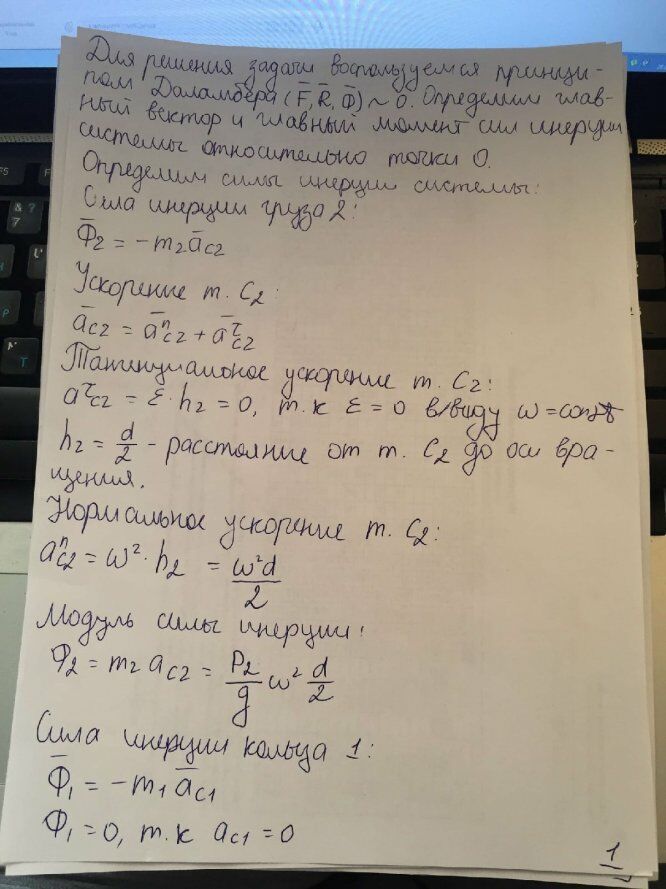 Для решения задачи воспользуемся принци-
пом Даламбера (F̅, R̅, Φ̅) ~ 0. Определим глав-
ный вектор и главный момент сил инерции
системы относительно точки О.
Определим силы инерции системы:
Сила инерции груза 2:
Φ̅₂ = -m₂a̅c₂
Ускорение т. C₂:
a̅c₂ = a̅ⁿc₂ + a̅^τc₂
Тангенциальное ускорение т. C₂:
a^τc₂ = ε · h₂ = 0, т.к ε = 0 ввиду ω = const
h₂ = d/2 - расстояние от т. C₂ до оси вра-
щения.
Нормальное ускорение т. C₂:
aⁿc₂ = ω² · h₂ = ω²d/2
Модуль силы инерции:
Φ₂ = m₂ac₂ = P₂/g ω² d/2
Сила инерции кольца 1:
Φ̅₁ = -m₁a̅c₁
Φ₁ = 0, т.к ac₁ = 0
1